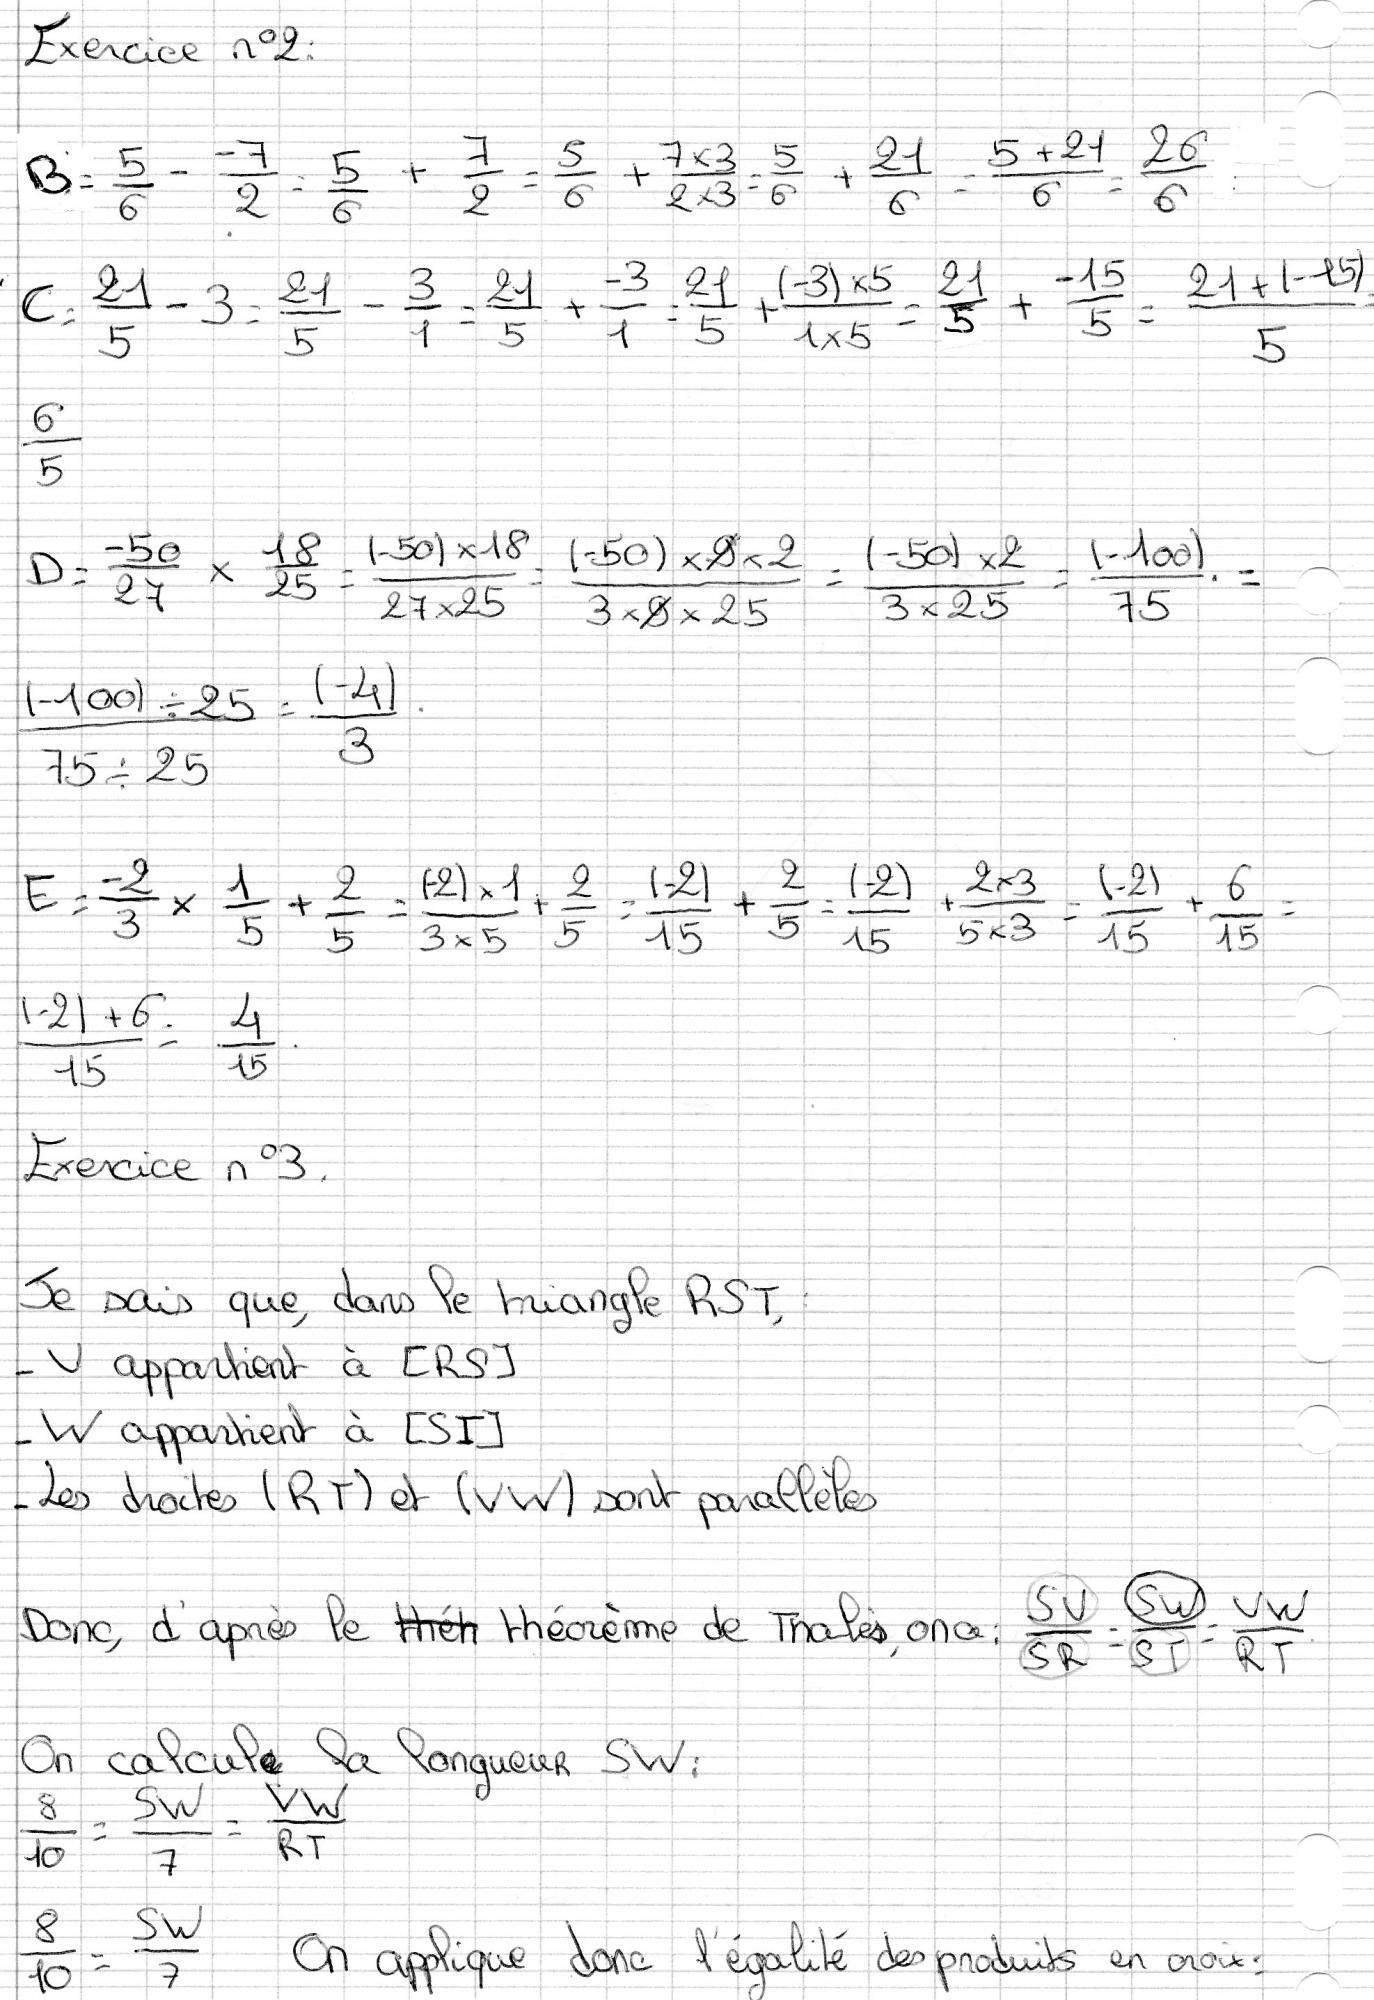 Exercice n°2:
B = 5/6 - -7/2 = 5/6 + 7/2 = 5/6 + 7×3/2×3 = 5/6 + 21/6 = 5+21/6 = 26/6
C = 21/5 - 3 = 21/5 - 3/1 = 21/5 + -3/1 = 21/5 + (-3)×5/1×5 = 21/5 + -15/5 = 21+(-15)/5 =
6/5
D = -50/27 × 18/25 = (-50)×18/27×25 = (-50)×9×2/3×9×25 = (-50)×2/3×25 = (-100)/75. =
(-100)÷25/75÷25 = (-4)/3.
E = -2/3 × 1/5 + 2/5 = (-2)×1/3×5 + 2/5 = (-2)/15 + 2/5 = (-2)/15 + 2×3/5×3 = (-2)/15 + 6/15 =
(-2)+6/15 = 4/15.
Exercice n°3.
Je sais que, dans le triangle RST,
- V appartient à [RS]
- W appartient à [ST]
- Les droites (RT) et (VW) sont parallèles
Donc, d'après le théh théorème de Thalès, on a: SV/SR = SW/ST = VW/RT.
On calcule la longueur SW:
8/10 = SW/7 = VW/RT
8/10 = SW/7 On applique donc l'égalité des produits en croix: